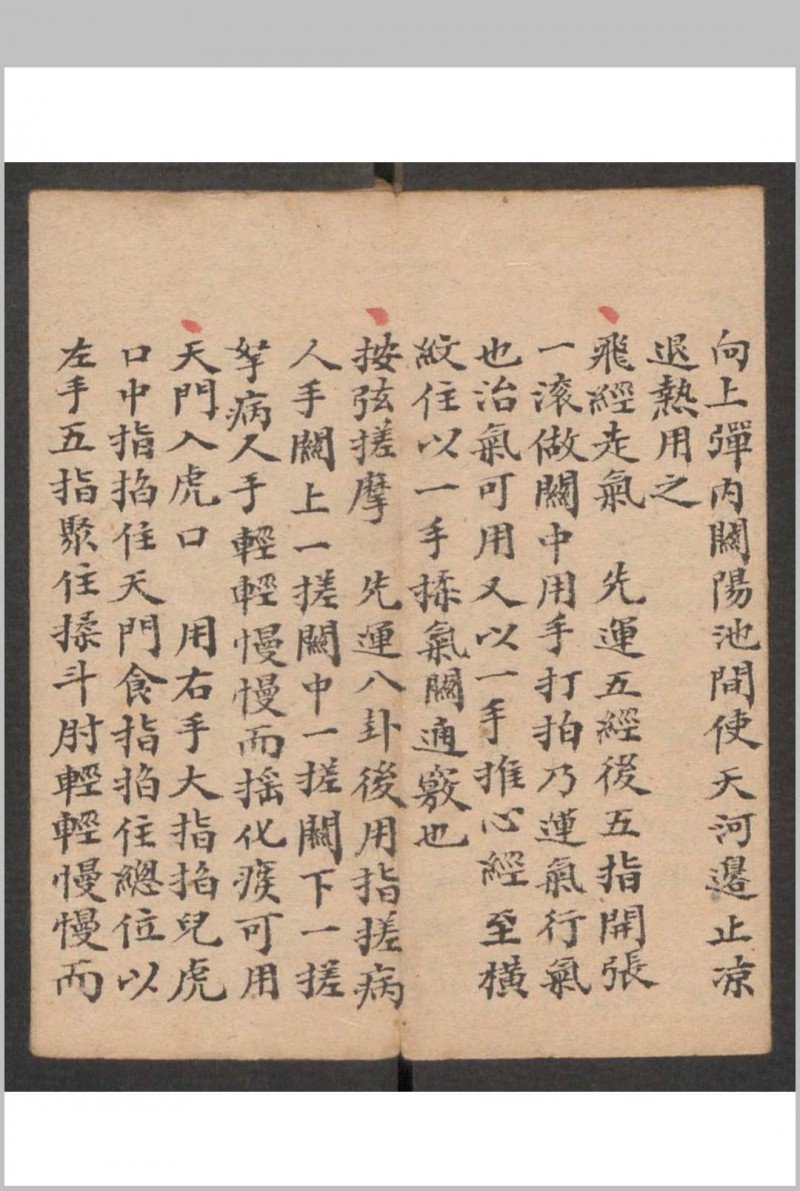 向上彈內關陽池間使天河邊止凉
退熱用之
飛經走氣　先運五經後五指開張
一滾做關中用手打拍乃運氣行氣
也治氣可用又以一手推心經至橫
紋住以一手揉氣關通竅也
按弦搓摩　先運八卦後用指搓病
人手關上一搓關中一搓關下一搓
拏病人手輕輕慢慢而搖化痰可用
天門入虎口　用右手大指掐兒虎
口中指掐住天門食指掐住總位以
左手五指聚住揉斗肘輕輕慢慢而